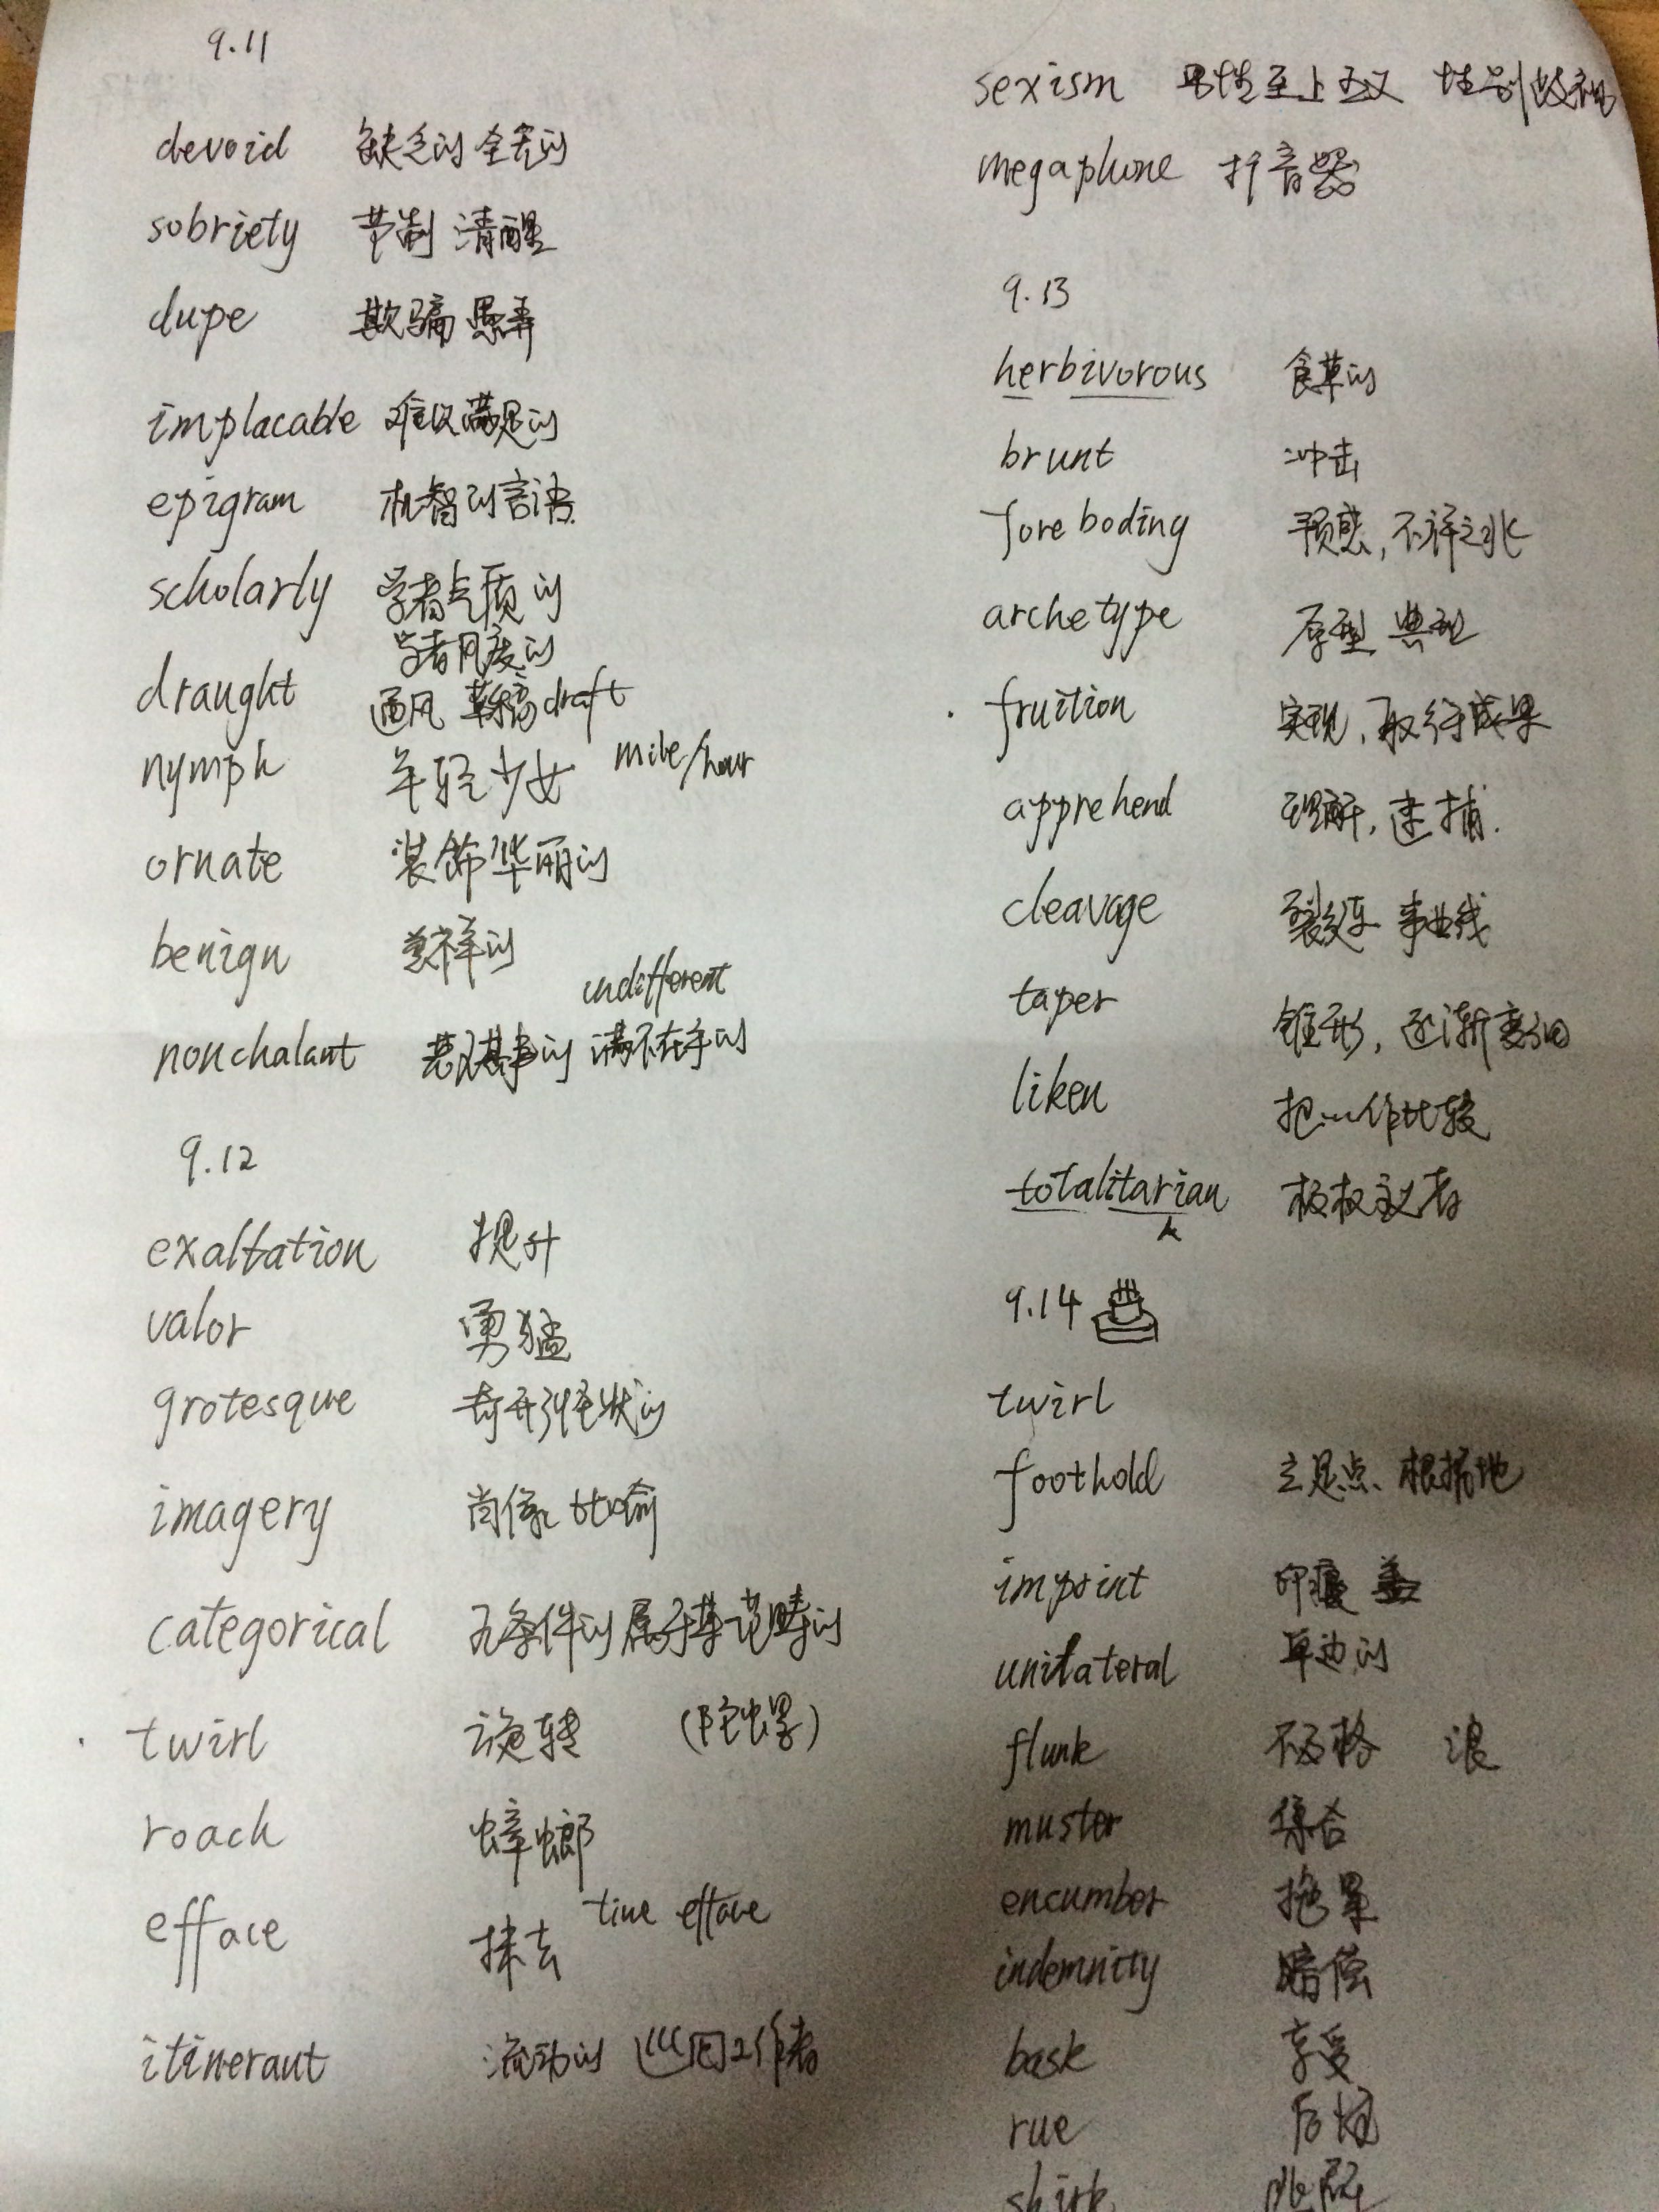 9.11
devoid 缺乏的 全无的
sobriety 节制 清醒
dupe 欺骗 愚弄
implacable 难以满足的
epigram 机智的言语
scholarly 学者气质的
学者风度的
draught 通风 草稿 draft
nymph 年轻少女 mile/hour
ornate 装饰华丽的
benign 慈祥的
indifferent
nonchalant 若无其事的 满不在乎的
9.12
exaltation 提升
valor 勇猛
grotesque 奇形怪状的
imagery 肖像 比喻
categorical 无条件的 属于某一范畴的
twirl 旋转 (陀螺)
roach 蟑螂
efface 抹去 time efface
itinerant 流动的 巡回工作者
sexism 男性至上主义 性别歧视
megaphone 扩音器
9.13
herbivorous 食草的
brunt 冲击
foreboding 预感,不祥之兆
archetype 原型 典型
fruition 实现,取得成果
apprehend 理解,逮捕.
cleavage 裂缝 事业线
taper 锥形,逐渐变细
liken 把…作比较
totalitarian 极权主义者
9.14
twirl
foothold 立足点、根据地
imprint 印痕 盖
unilateral 单边的
flunk 不及格 浪
muster 集合
encumber 拖累
indemnity 赔偿
bask 享受
rue 后悔
shirk 逃避